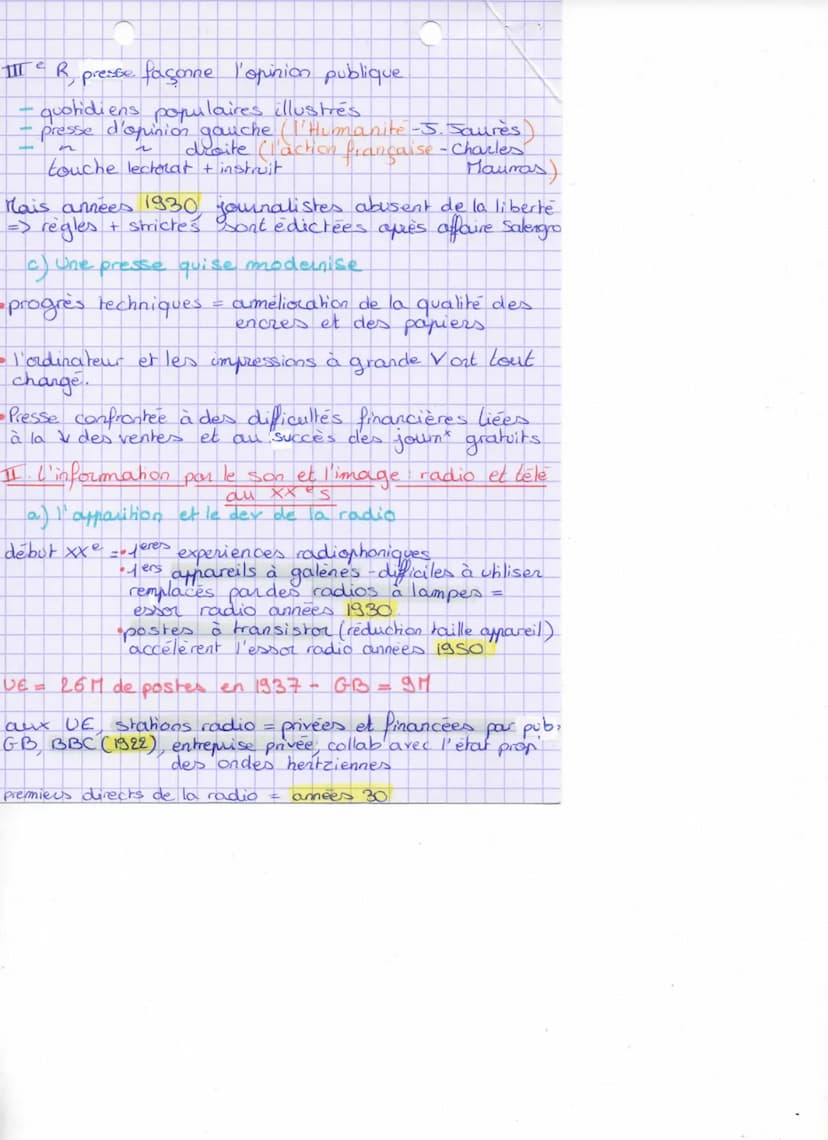 IIIe R, presse façonne l'opinion publique
- quotidiens populaires illustrés
- presse d'opinion gauche (l'Humanité - J. Jaurès)
- " " droite (l'action française - Charles
touche lectorat + instruit Maurras)
Mais années 1930, journalistes abusent de la liberté
=> règles + strictes sont édictées après affaire Salengro
c) Une presse qui se modernise
• progrès techniques = amélioration de la qualité des
encres et des papiers
• l'ordinateur et les impressions à grande V ont tout
changé.
• Presse confrontée à des difficultés financières liées
à la ↓ des ventes et au succès des journx gratuits
II. L'information par le son et l'image : radio et télé
au XXe s
a) l'apparition et le dev de la radio
début XXe = • 1eres expériences radiophoniques
• 1ers appareils à galènes - difficiles à utiliser
remplacés par des radios à lampes =
essor radio années 1930
• postes à transistor (réduction taille appareil)
accélèrent l'essor radio années 1950
UE = 26M de postes en 1937 - GB = 9M
aux UE, stations radio = privées et financées par pub.
GB, BBC (1922), entreprise privée, collab avec l'état prop.
des ondes hertziennes
premiers directs de la radio = années 30